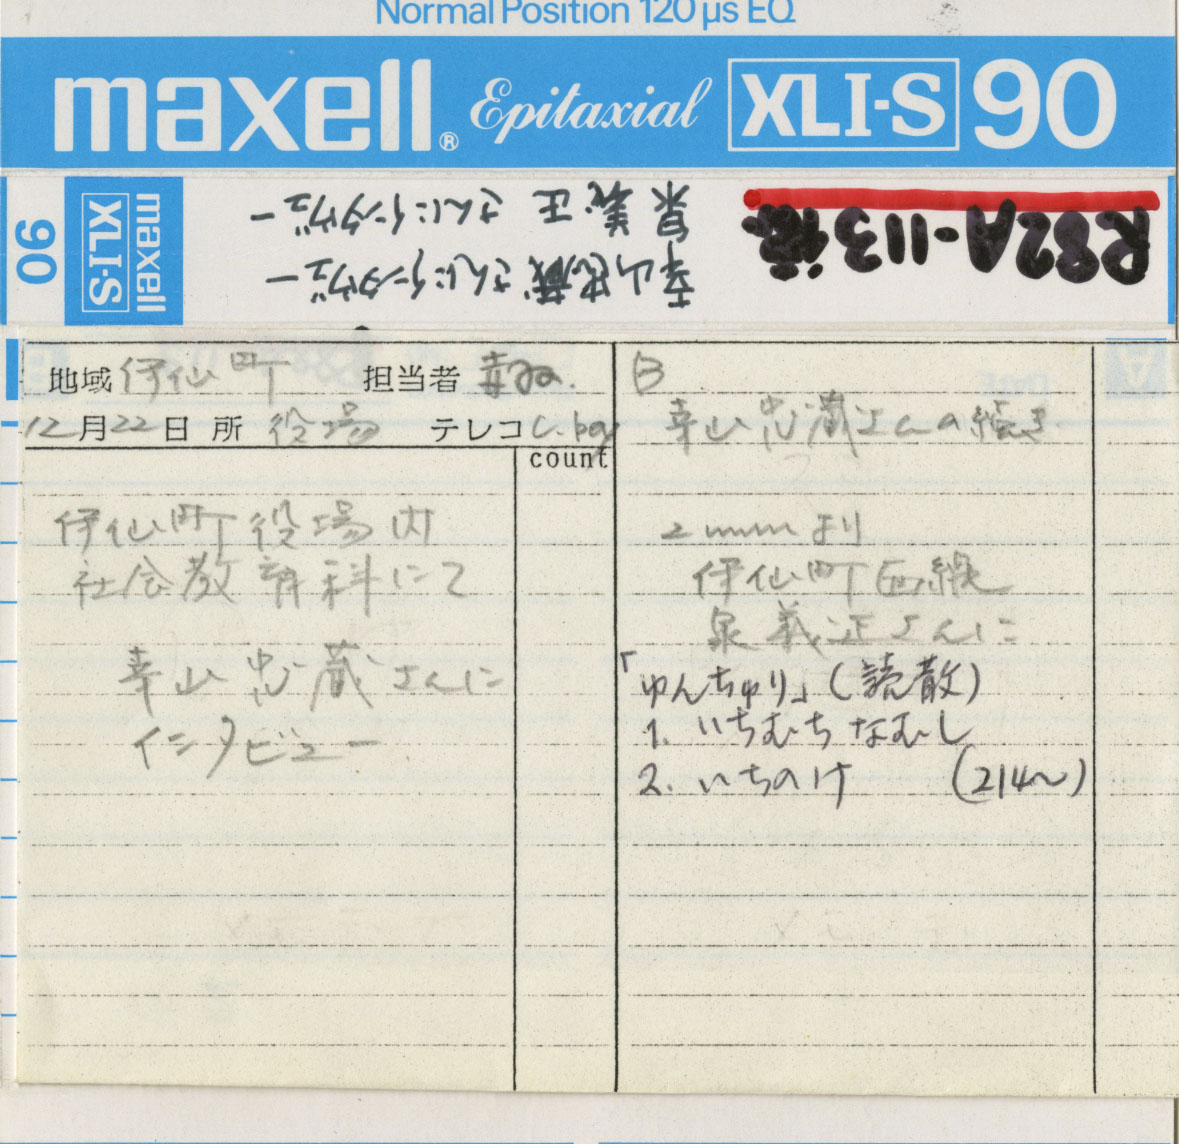 Normal Position 120 µs EQ
maxell® Epitaxial XLI-S 90
90 XLI-S maxell
R82A-113
幸山忠蔵さんにインタヴュー
泉 義正 さんにインタヴュー
地域 伊仙町 担当者
12月22日 所 役場 テレコ
count
伊仙町役場内
社会教育科にて
幸山忠蔵さんに
インタビュー
B
幸山忠蔵さんの続き
2mmより
伊仙町面縄
泉義正さんに
「ゆんちゅり」(読散)
1. いちむち なむし
2. いちのけ (214〜)